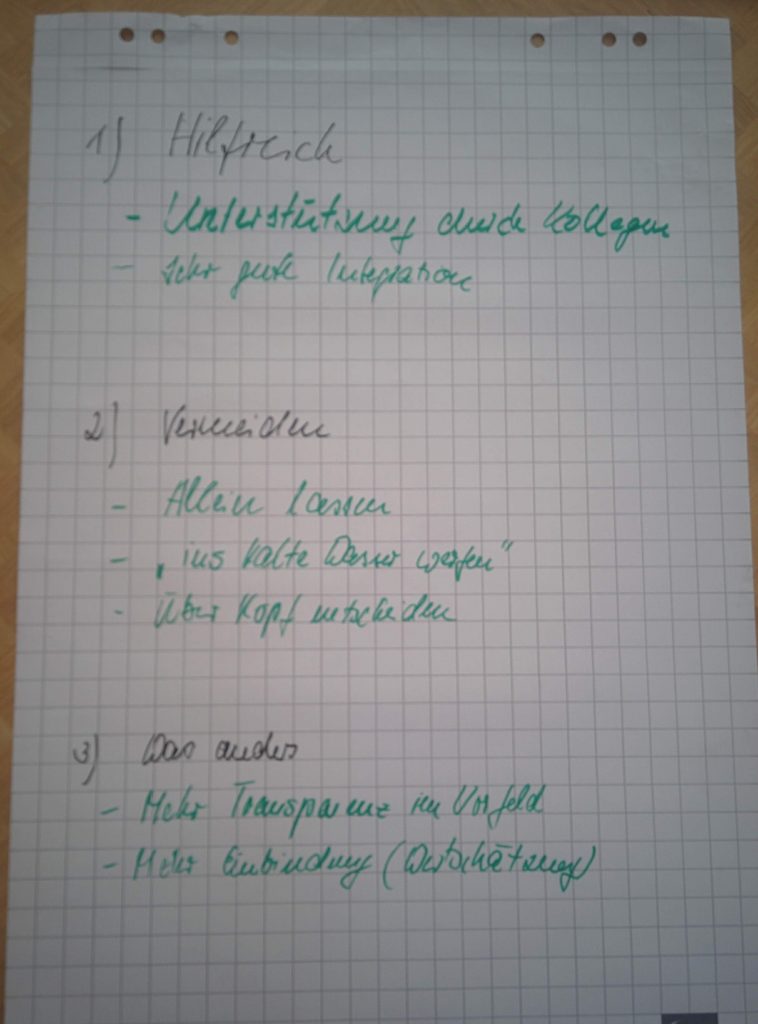 1) Hilfreich
- Unterstützung durch Kollegen
- Sehr gute Integration
2) Vermeiden
- Allein lassen
- „ins kalte Wasser werfen"
- Über Kopf entscheiden
3) Was anders
- Mehr Transparenz im Vorfeld
- Mehr Einbindung (Wertschätzung)